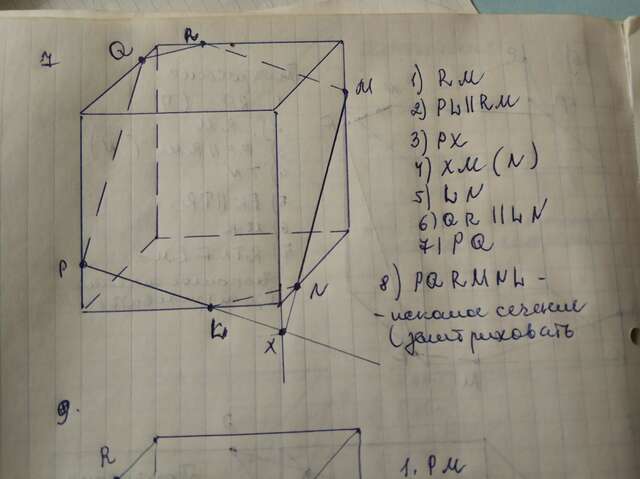 7
Q
R
M
P
L
N
X
1) RM
2) PL||RM
3) PX
4) XM (N)
5) LN
6) QR || LN
7) PQ
8) PQRMNL -
- искомое сечение
(заштриховать
9.
R
1. PM